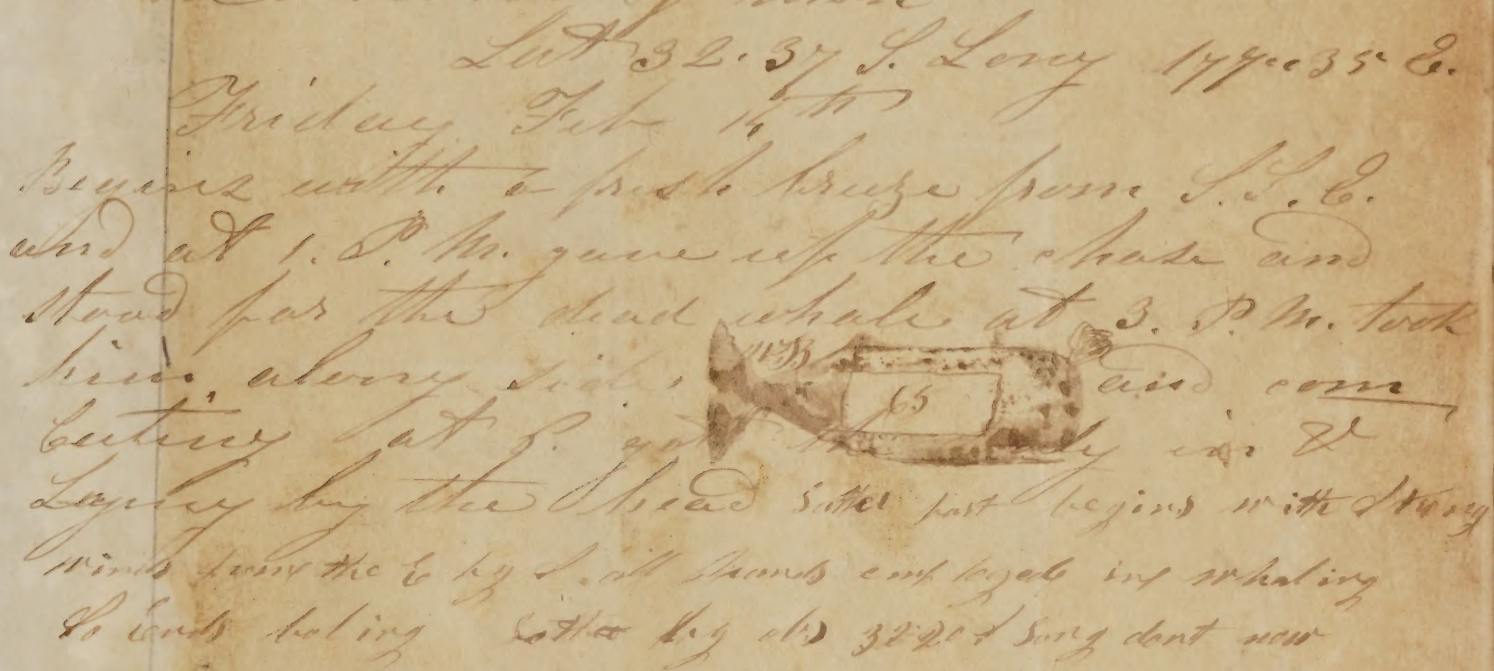 Lat 32.37 S. Long 177..35 E.
Friday Feb 14th
Begins with a fresh breeze from S.S.E.
and at 1. P.M. gave up the chase and
stood for the dead whale at 3. P.M. took
him along side and com
65
Cuting at got the in &
Laying by the head latter part begins with Strong
winds from the E by S. all hands employed in whaling
So Ends boiling Latta by obs Long dont now